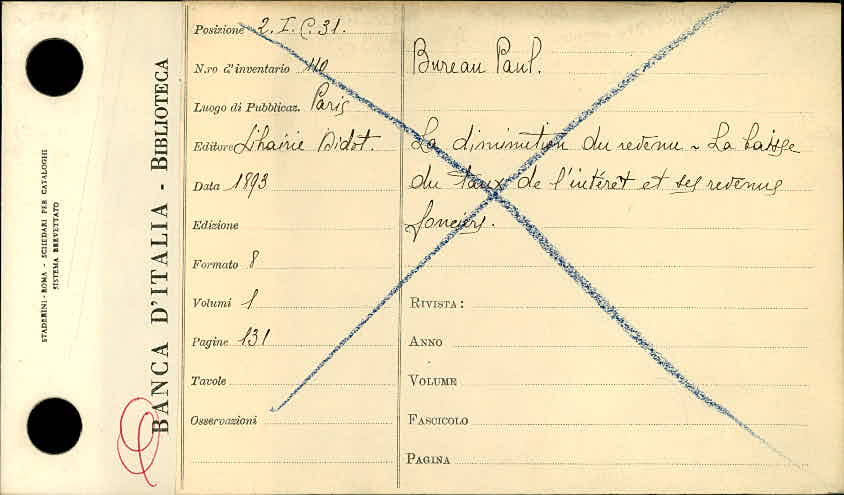 STADERINI - ROMA - SCHEDARI PER CATALOGHI
SISTEMA BREVETTATO
BANCA D'ITALIA - BIBLIOTECA
Posizione 2. I. C. 31.
N.ro d'inventario 110
Luogo di Pubblicaz. Paris
Editore Lihairie Didot.
Data 1893
Edizione
Formato 8
Volumi 1
Pagine 131
Tavole
Osservazioni
Bureau Paul.
La diminution du revenu - La baisse
du taux de l'intéret et ses revenus
fonciers.
RIVISTA:
ANNO
VOLUME
FASCICOLO
PAGINA